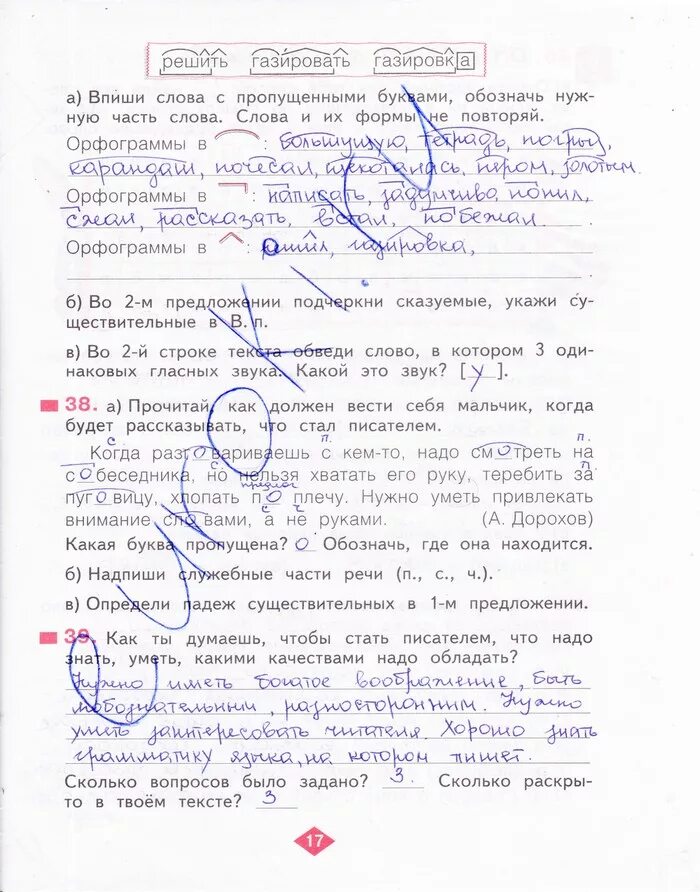 решить газировать газировка
а) Впиши слова с пропущенными буквами, обозначь нуж-
ную часть слова. Слова и их формы не повторяй.
Орфограммы в : большущую, тетрадь, погрыз,
карандаш, почесал, щекоталась, пером, золотым.
Орфограммы в : написать, задумчиво, понил,
сжал, рассказать, встал, побежал.
Орфограммы в : решил, газировка,
б) Во 2-м предложении подчеркни сказуемые, укажи су-
ществительные в В. п.
в) Во 2-й строке текста обведи слово, в котором 3 оди-
наковых гласных звука. Какой это звук? [у].
38. а) Прочитай, как должен вести себя мальчик, когда
будет рассказывать, что стал писателем.
с. п. п.
Когда разговариваешь с кем-то, надо смотреть на
с. п
собеседника, но нельзя хватать его руку, теребить за
предлог
пуговицу, хлопать по плечу. Нужно уметь привлекать
с ч
внимание словами, а не руками. (А. Дорохов)
Какая буква пропущена? о Обозначь, где она находится.
б) Надпиши служебные части речи (п., с., ч.).
в) Определи падеж существительных в 1-м предложении.
39. Как ты думаешь, чтобы стать писателем, что надо
знать, уметь, какими качествами надо обладать?
Нужно иметь богатое воображение, быть
любознательным, разносторонним. Нужно
уметь заинтересовать читателя. Хорошо знать
грамматику языка, на котором пишет.
Сколько вопросов было задано? 3. Сколько раскры-
то в твоём тексте? 3
17